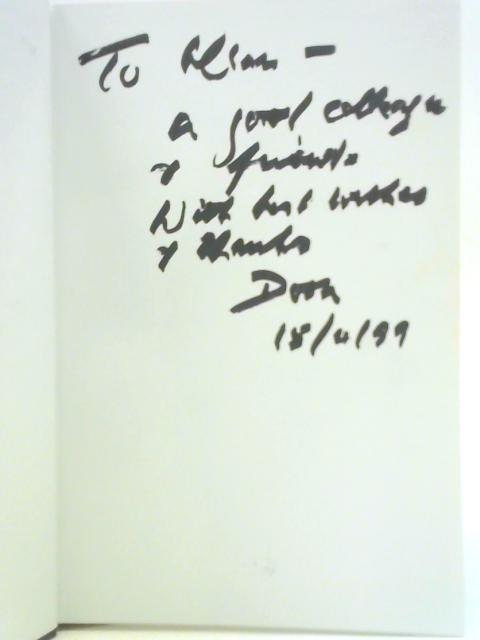 To -
a good colleague
& friend
With best wishes
& thanks
18/4/99